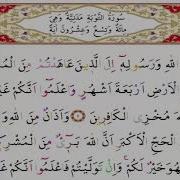 سُورَةُ التَّوْبَةِ مَدَنِيَّةٌ وَهِيَ
مِائَةٌ وَتِسْعٌ وَعِشْرُونَ آيَةً
اللَّهِ وَرَسُولِهِ إِلَى الَّذِينَ عَاهَدتُّم مِّنَ
الْأَرْضِ أَرْبَعَةَ أَشْهُرٍ وَاعْلَمُوا أَنَّكُمْ
مُخْزِي الْكَافِرِينَ وَأَذَانٌ مِّنَ اللَّهِ
الْحَجِّ الْأَكْبَرِ أَنَّ اللَّهَ بَرِيءٌ مِّنَ
فَهُوَ خَيْرٌ لَّكُمْ وَإِن تَوَلَّيْتُمْ فَاعْلَمُوا أَنَّكُمْ